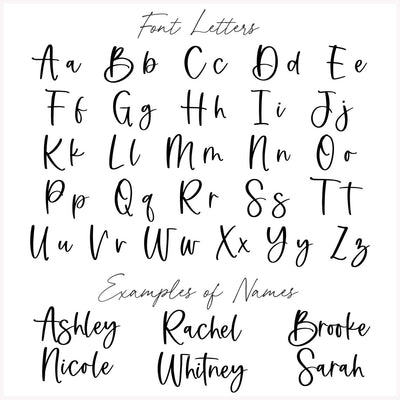 Font Letters
A a B b C c D d E e
F f G g H h I i J j
K k L l M m N n O o
P p Q q R r S s T t
U u V v W w X x Y y Z z
Examples of Names
Ashley Rachel Brooke
Nicole Whitney Sarah